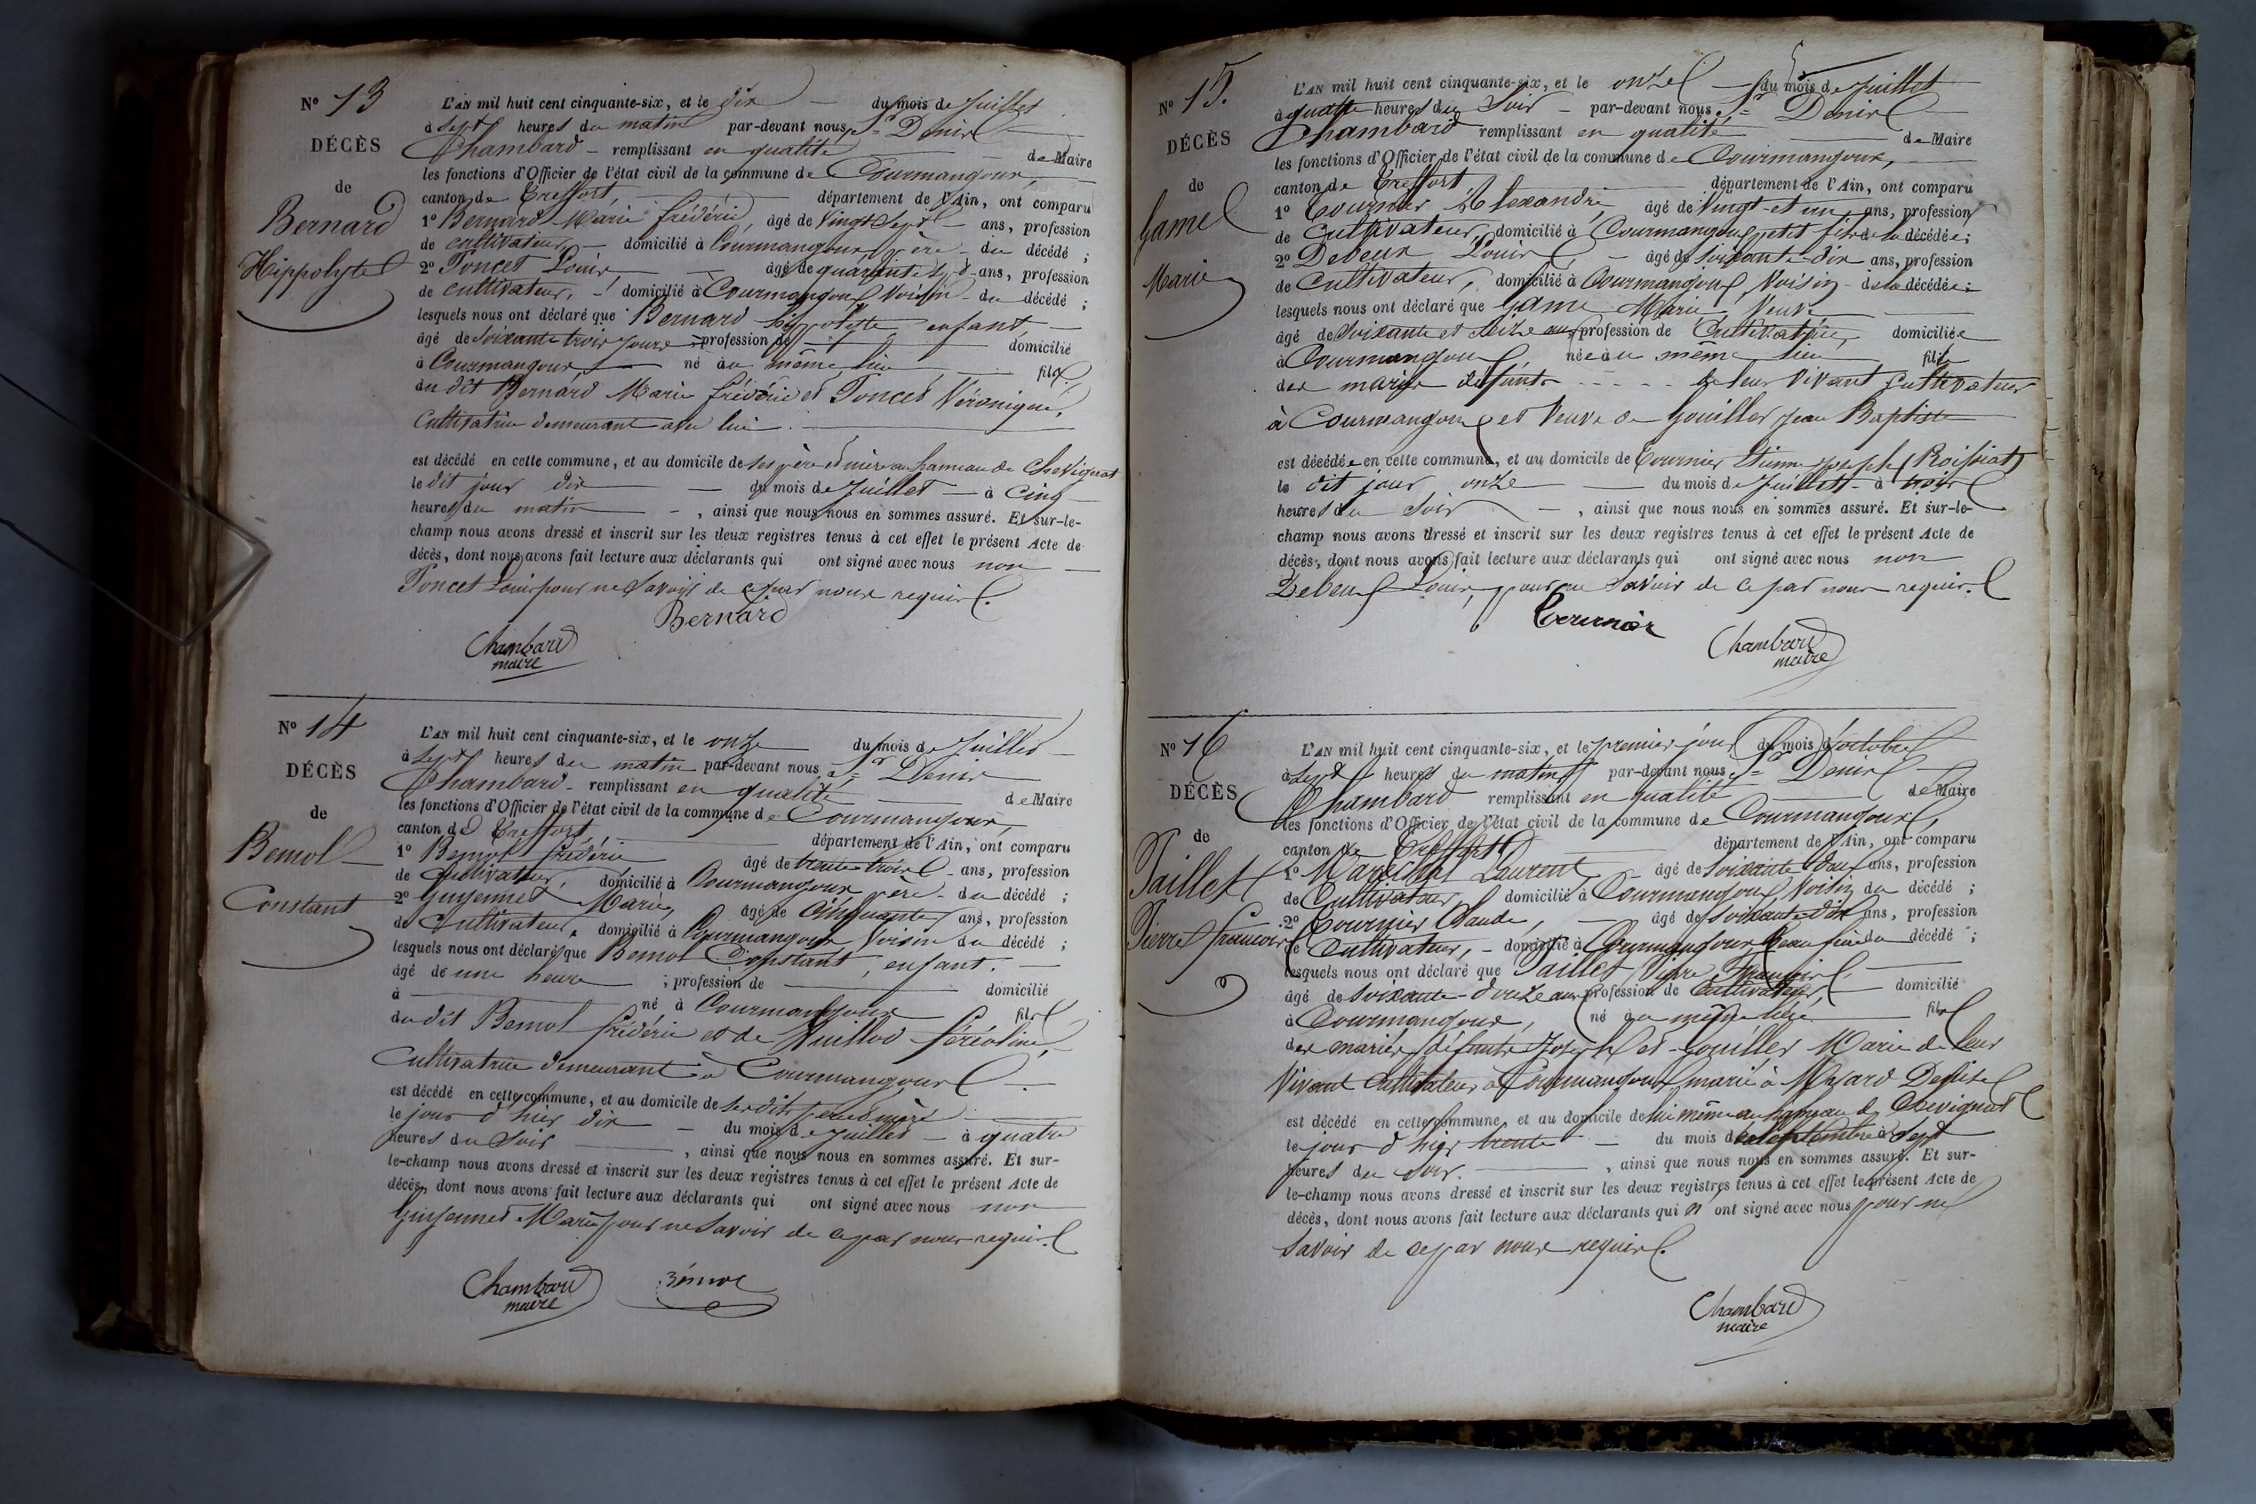 N° 13
DÉCÈS
de
Bernard
Hippolyte
L'AN mil huit cent cinquante-six, et le dix du mois de Juillet
à Sept heures du matin par-devant nous Sr Denis
Chambard remplissant en qualité de Maire
les fonctions d'Officier de l'état civil de la commune de Courmangoux,
canton de Treffort, département de l'Ain, ont comparu
1° Bernard Marie frédéric, âgé de Vingt Sept ans, profession
de cultivateur, domicilié à Courmangoux père du décédé ;
2° Poncet Louis, âgé de quarante ans, profession
de cultivateur, domicilié à Courmangoux Voisin du décédé ;
lesquels nous ont déclaré que Bernard hippolytte, enfant,
âgé de Soixante trois jours profession de domicilié
à Courmangoux, né au même lieu fils
du dit Bernard Marie frédéric et Poncet Véronique,
Cultivatrice demeurant avec lui.
est décédé en cette commune, et au domicile de ses père et mère au hameau de Chevignat
le dit jour dix du mois de Juillet à Cinq
heures du matin , ainsi que nous nous en sommes assuré. Et sur-le-
champ nous avons dressé et inscrit sur les deux registres tenus à cet effet le présent Acte de
décès, dont nous avons fait lecture aux déclarants qui ont signé avec nous non
Poncet Louis pour ne Savoir de ce par nous requis.
Bernard
Chambard
maire
N° 14
DÉCÈS
de
Bemol
Constant
L'AN mil huit cent cinquante-six, et le onze du mois de Juillet
à Sept heures du matin par-devant nous Sr Denis
Chambard remplissant en qualité de Maire
les fonctions d'Officier de l'état civil de la commune de Courmangoux,
canton de Treffort, département de l'Ain, ont comparu
1° Bemol frédéric âgé de trente trois ans, profession
de Cultivateur, domicilié à Courmangoux père du décédé ;
2° Guyennet Marie, âgé de Cinquante ans, profession
de Cultivateur, domicilié à Courmangoux Voisin du décédé ;
lesquels nous ont déclaré que Bemol Constant, enfant.
âgé de une heure ; profession de domicilié
à né à Courmangoux fils
du dit Bemol frédéric et de Vuillod féréoline,
Cultivatrice demeurant à Courmangoux
est décédé en cette commune, et au domicile de ses dits père et mère
le jour d'hier dix du mois de Juillet à quatre
heures du Soir , ainsi que nous nous en sommes assuré. Et sur-
le-champ nous avons dressé et inscrit sur les deux registres tenus à cet effet le présent Acte de
décès, dont nous avons fait lecture aux déclarants qui ont signé avec nous non
Guyennet Marie pour ne Savoir de ce par nous requis.
Chambard
maire
Bémol
N° 15.
DÉCÈS
de
Game
Marie
L'AN mil huit cent cinquante-six, et le onze du mois de Juillet
à quatre heures du Soir par-devant nous Sr Denis
Chambard remplissant en qualité de Maire
les fonctions d'Officier de l'état civil de la commune de Courmangoux,
canton de Treffort, département de l'Ain, ont comparu
1° Tournier Alexandre, âgé de Vingt et un ans, profession
de Cultivateur, domicilié à Courmangoux petit fils de la décédée ;
2° Debeux Louis, âgé de Soixante dix ans, profession
de Cultivateur, domicilié à Courmangoux Voisin de la décédée ;
lesquels nous ont déclaré que Game Marie, Veuve
âgé de Soixante et Seize ans profession de Cultivatrice, domiciliée
à Courmangoux, née au même lieu fille
des mariés défunts de leur Vivant Cultivateurs
à Courmangoux et Veuve de Gouiller Jean Baptiste
est décédée en cette commune, et au domicile de Tournier Etienne Joseph (Roissiat)
le dit jour onze du mois de Juillet à trois
heures du Soir , ainsi que nous nous en sommes assuré. Et sur-le-
champ nous avons dressé et inscrit sur les deux registres tenus à cet effet le présent Acte de
décès, dont nous avons fait lecture aux déclarants qui ont signé avec nous non
Debeux Louis, pour ne Savoir de ce par nous requis.
Tournier
Chambard
maire
N° 16
DÉCÈS
de
Paillet
Pierre françois
L'AN mil huit cent cinquante-six, et le premier jour du mois d'octobre
à Sept heures du matin par-devant nous Sr Denis
Chambard remplissant en qualité de Maire
les fonctions d'Officier de l'état civil de la commune de Courmangoux,
canton de Treffort, département de l'Ain, ont comparu
1° Maréchal Laurent, âgé de Soixante deux ans, profession
de Cultivateur, domicilié à Courmangoux Voisin du décédé ;
2° Tournier Claude, âgé de Soixante dix ans, profession
de Cultivateur, domicilié à Courmangoux Beau frère du décédé ;
lesquels nous ont déclaré que Paillet Pierre françois,
âgé de Soixante-douze ans profession de Cultivateur, domicilié
à Courmangoux, né au même lieu fils
des mariés défunts Joseph et Gouiller Marie de leur
Vivant Cultivateurs à Courmangoux marié à Mazard Denise
est décédé en cette commune, et au domicile de lui même au hameau de Chevignat
le jour d'hier trente du mois de Septembre à Sept
heures du Soir. , ainsi que nous nous en sommes assuré. Et sur-
le-champ nous avons dressé et inscrit sur les deux registres tenus à cet effet le présent Acte de
décès, dont nous avons fait lecture aux déclarants qui n'ont signé avec nous pour ne
Savoir de ce par nous requis.
Chambard
maire